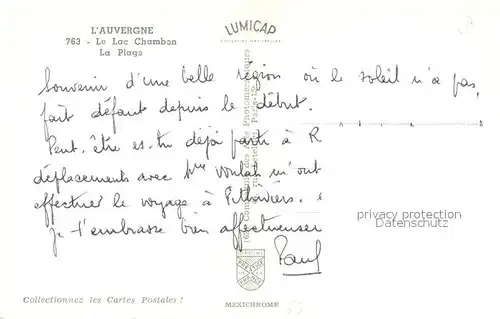 L'AUVERGNE
763 - Le Lac Chambon
La Plage
LUMICAP
Souvenir d'une belle région où le soleil n'a pas
fait défaut depuis le début.
Peut-être es-tu déjà parti à R
déplacements avec Mme m'ont
effectuer le voyage à Pithiviers.
je t'embrasse bien affectueusement
Paul
privacy protection
watermark
Collectionnez les Cartes Postales !
MEXICHROME